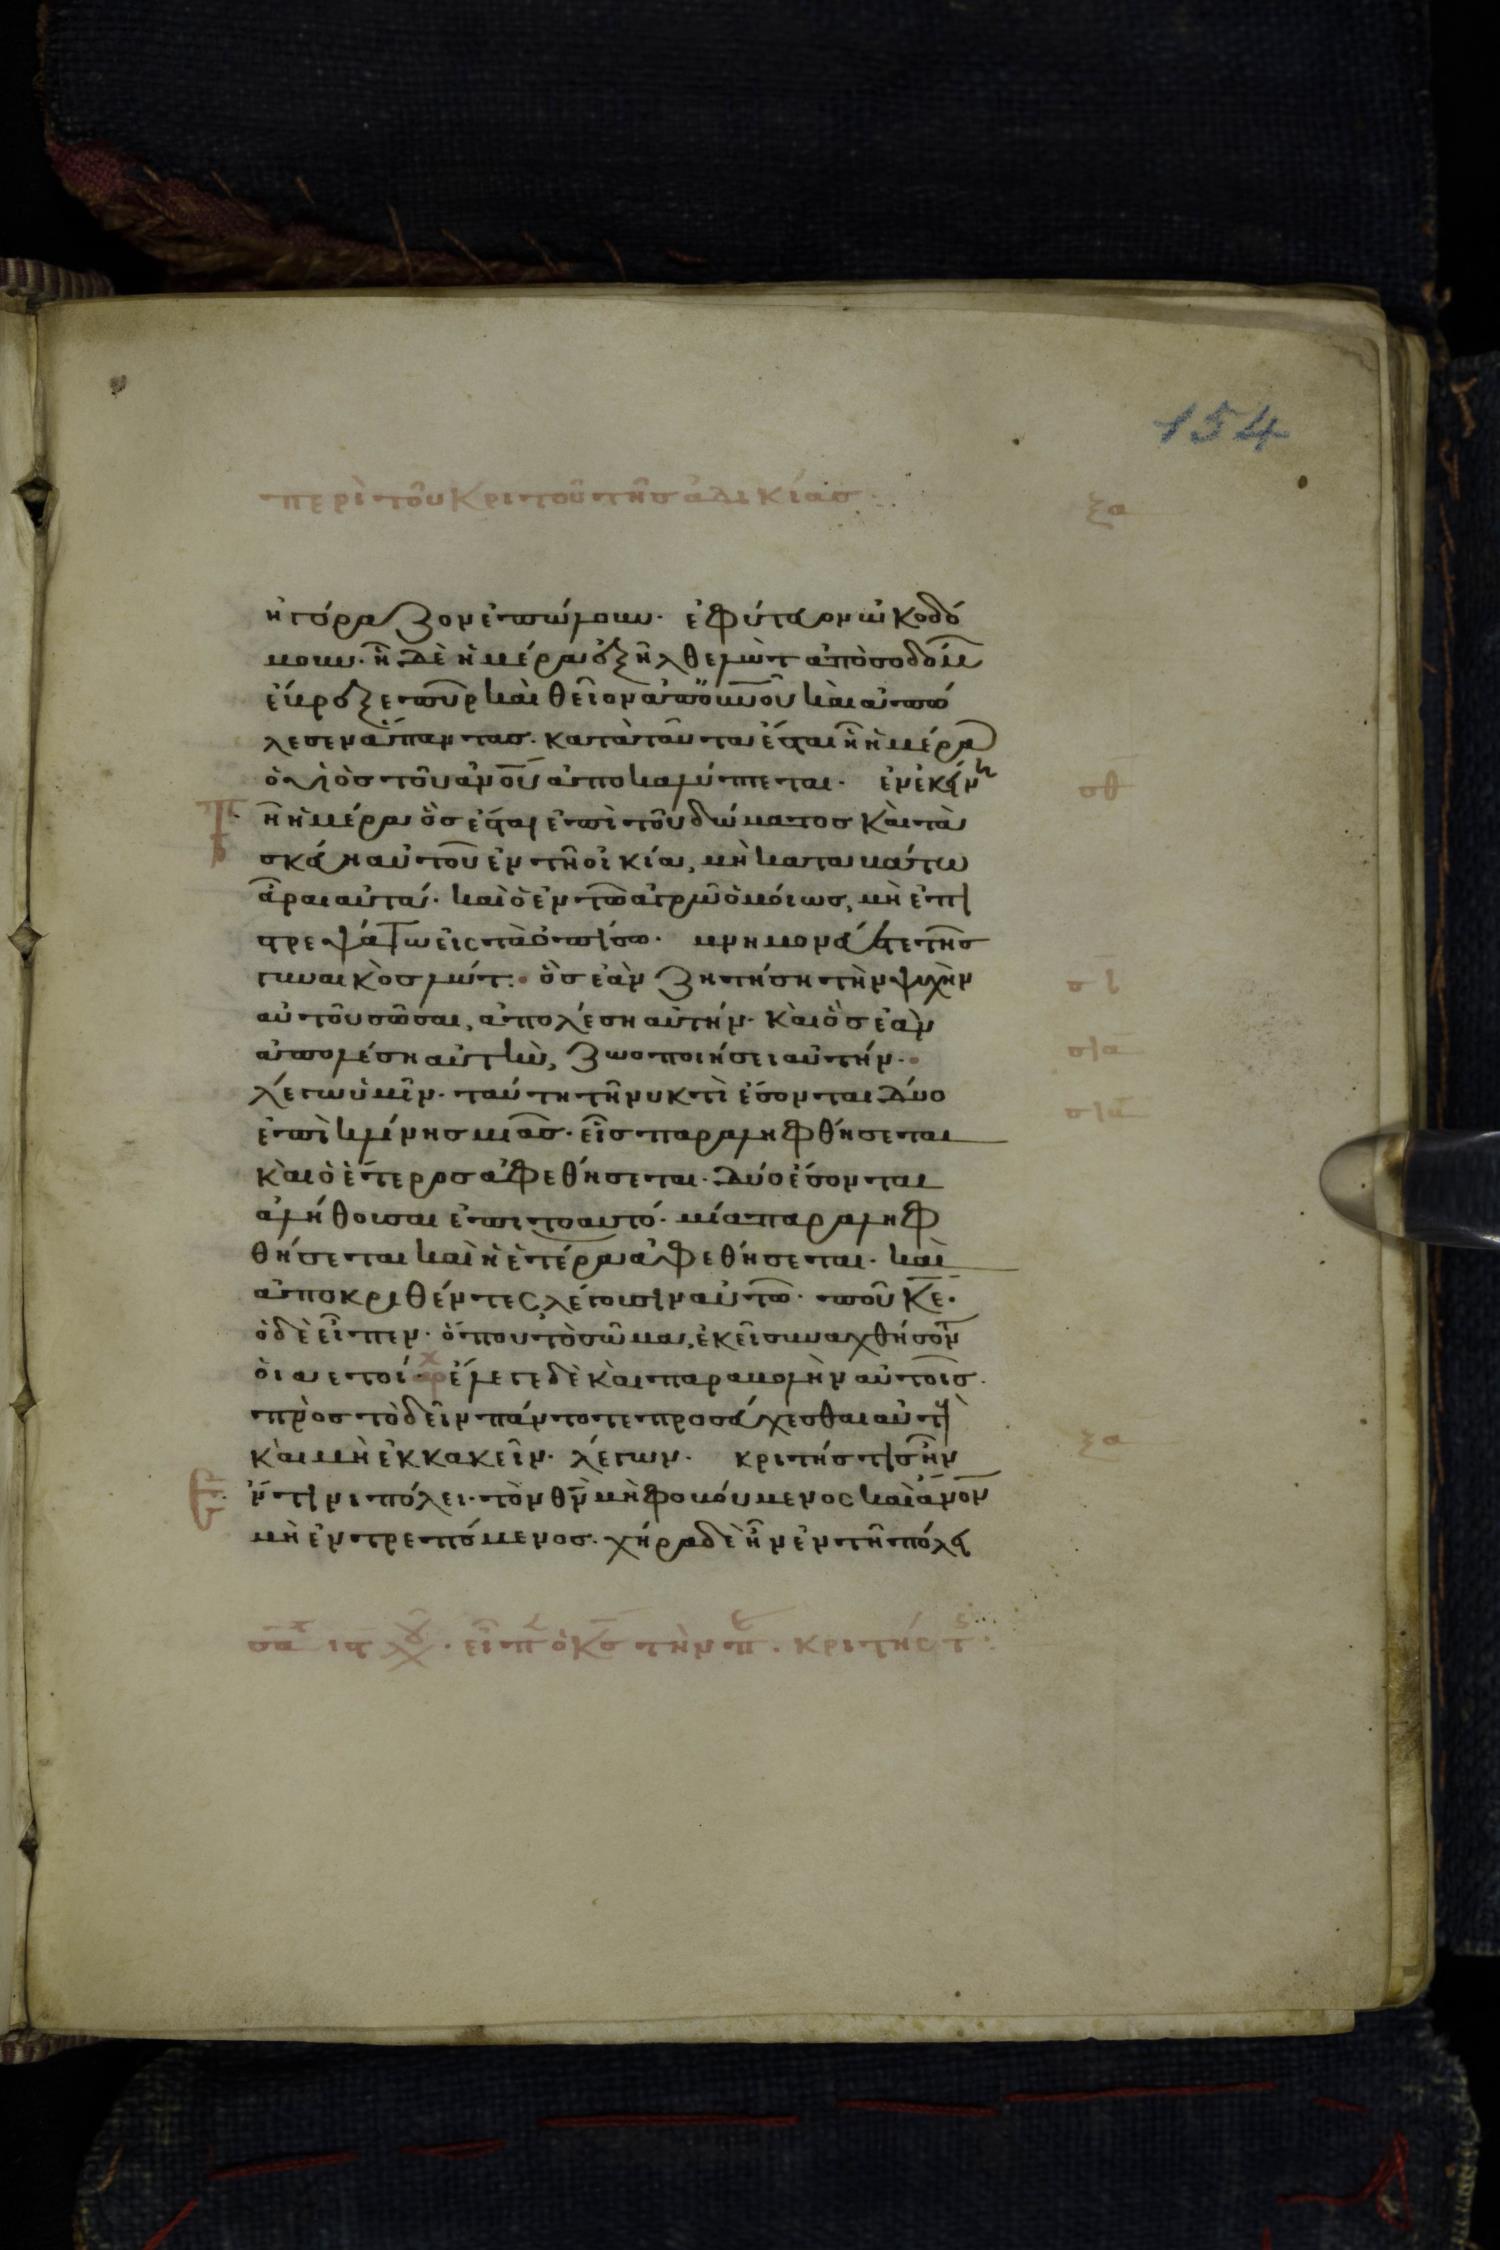 154
περὶ τοῦ κριτοῦ τῆς ἀδικίας
ξα
ἠγόραζον ἐπώλουν· ἐφύτευον ὠκοδό
μουν· ἧ δὲ ἡμέρα ἐξῆλθε λὼτ ἀπὸ σοδόμ
ἔβρεξε πῦρ καὶ θεῖον ἀπ' οὐνοῦ καὶ ἀπώ
λεσεν ἅπαντας· κατὰ ταῦτα ἔσται ἧ ἡμέρα
ὁ υἱὸς τοῦ ἀνοῦ ἀποκαλύπτεται· ἐν ἐκείνη
σθ
ἧ ἡμέρα ὃς ἔσται ἐπὶ τοῦ δώματος καὶ τὰ
σκεύη αὐτοῦ ἐν τῆ οἰκία, μὴ καταβάτω
ἆραι αὐτά· καὶ ὁ ἐν τῶ ἀγρῶ ὁμοίως, μὴ ἐπι
στρεψάτω εἰς τὰ ὀπίσω· μνημονεύετε τῆς
γυναικὸς λώτ· ὃς ἐὰν ζητήση τὴν ψυχὴν
σι
αὐτοῦ σῶσαι, ἀπολέση αὐτήν· καὶ ὃς ἐὰν
ἀπολέση αὐτὴν, ζωοποιήσει αὐτήν·
σια
λέγω ὑμῖν· ταύτη τῆ νυκτὶ ἔσονται δύο
ἐπὶ κλίνης μιᾶς· εἷς παραληφθήσεται
καὶ ὁ ἕτερος ἀφεθήσεται· δύο ἔσονται
ἀλήθουσαι ἐπι τοαυτό· μία παραληφ
θήσεται καὶ ἡ ἑτέρα ἀφεθήσεται· καὶ
ἀποκριθέντες λέγουσιν αὐτῶ· ποῦ κε·
ὁ δὲ εἶπεν· ὅπου τὸ σῶμα, ἐκεῖ συναχθήσον
οι αετοί ἔλεγε δὲ καὶ παραβολὴν αὐτοῖς·
πρὸς τὸ δεῖν πάντοτε προσεύχεσθαι αὐτ
καὶ μὴ ἐκκακεῖν· λέγων· κριτής τις ἦν
ξα
ἔν τινι πόλει· τὸν θν μὴ φοβούμενος καὶ ἀνον
μὴ ἐντρεπόμενος· χήρα δὲ ἦν ἐν τῆ πόλει
εἶπ ὁ κς τὴν π· κριτής τ